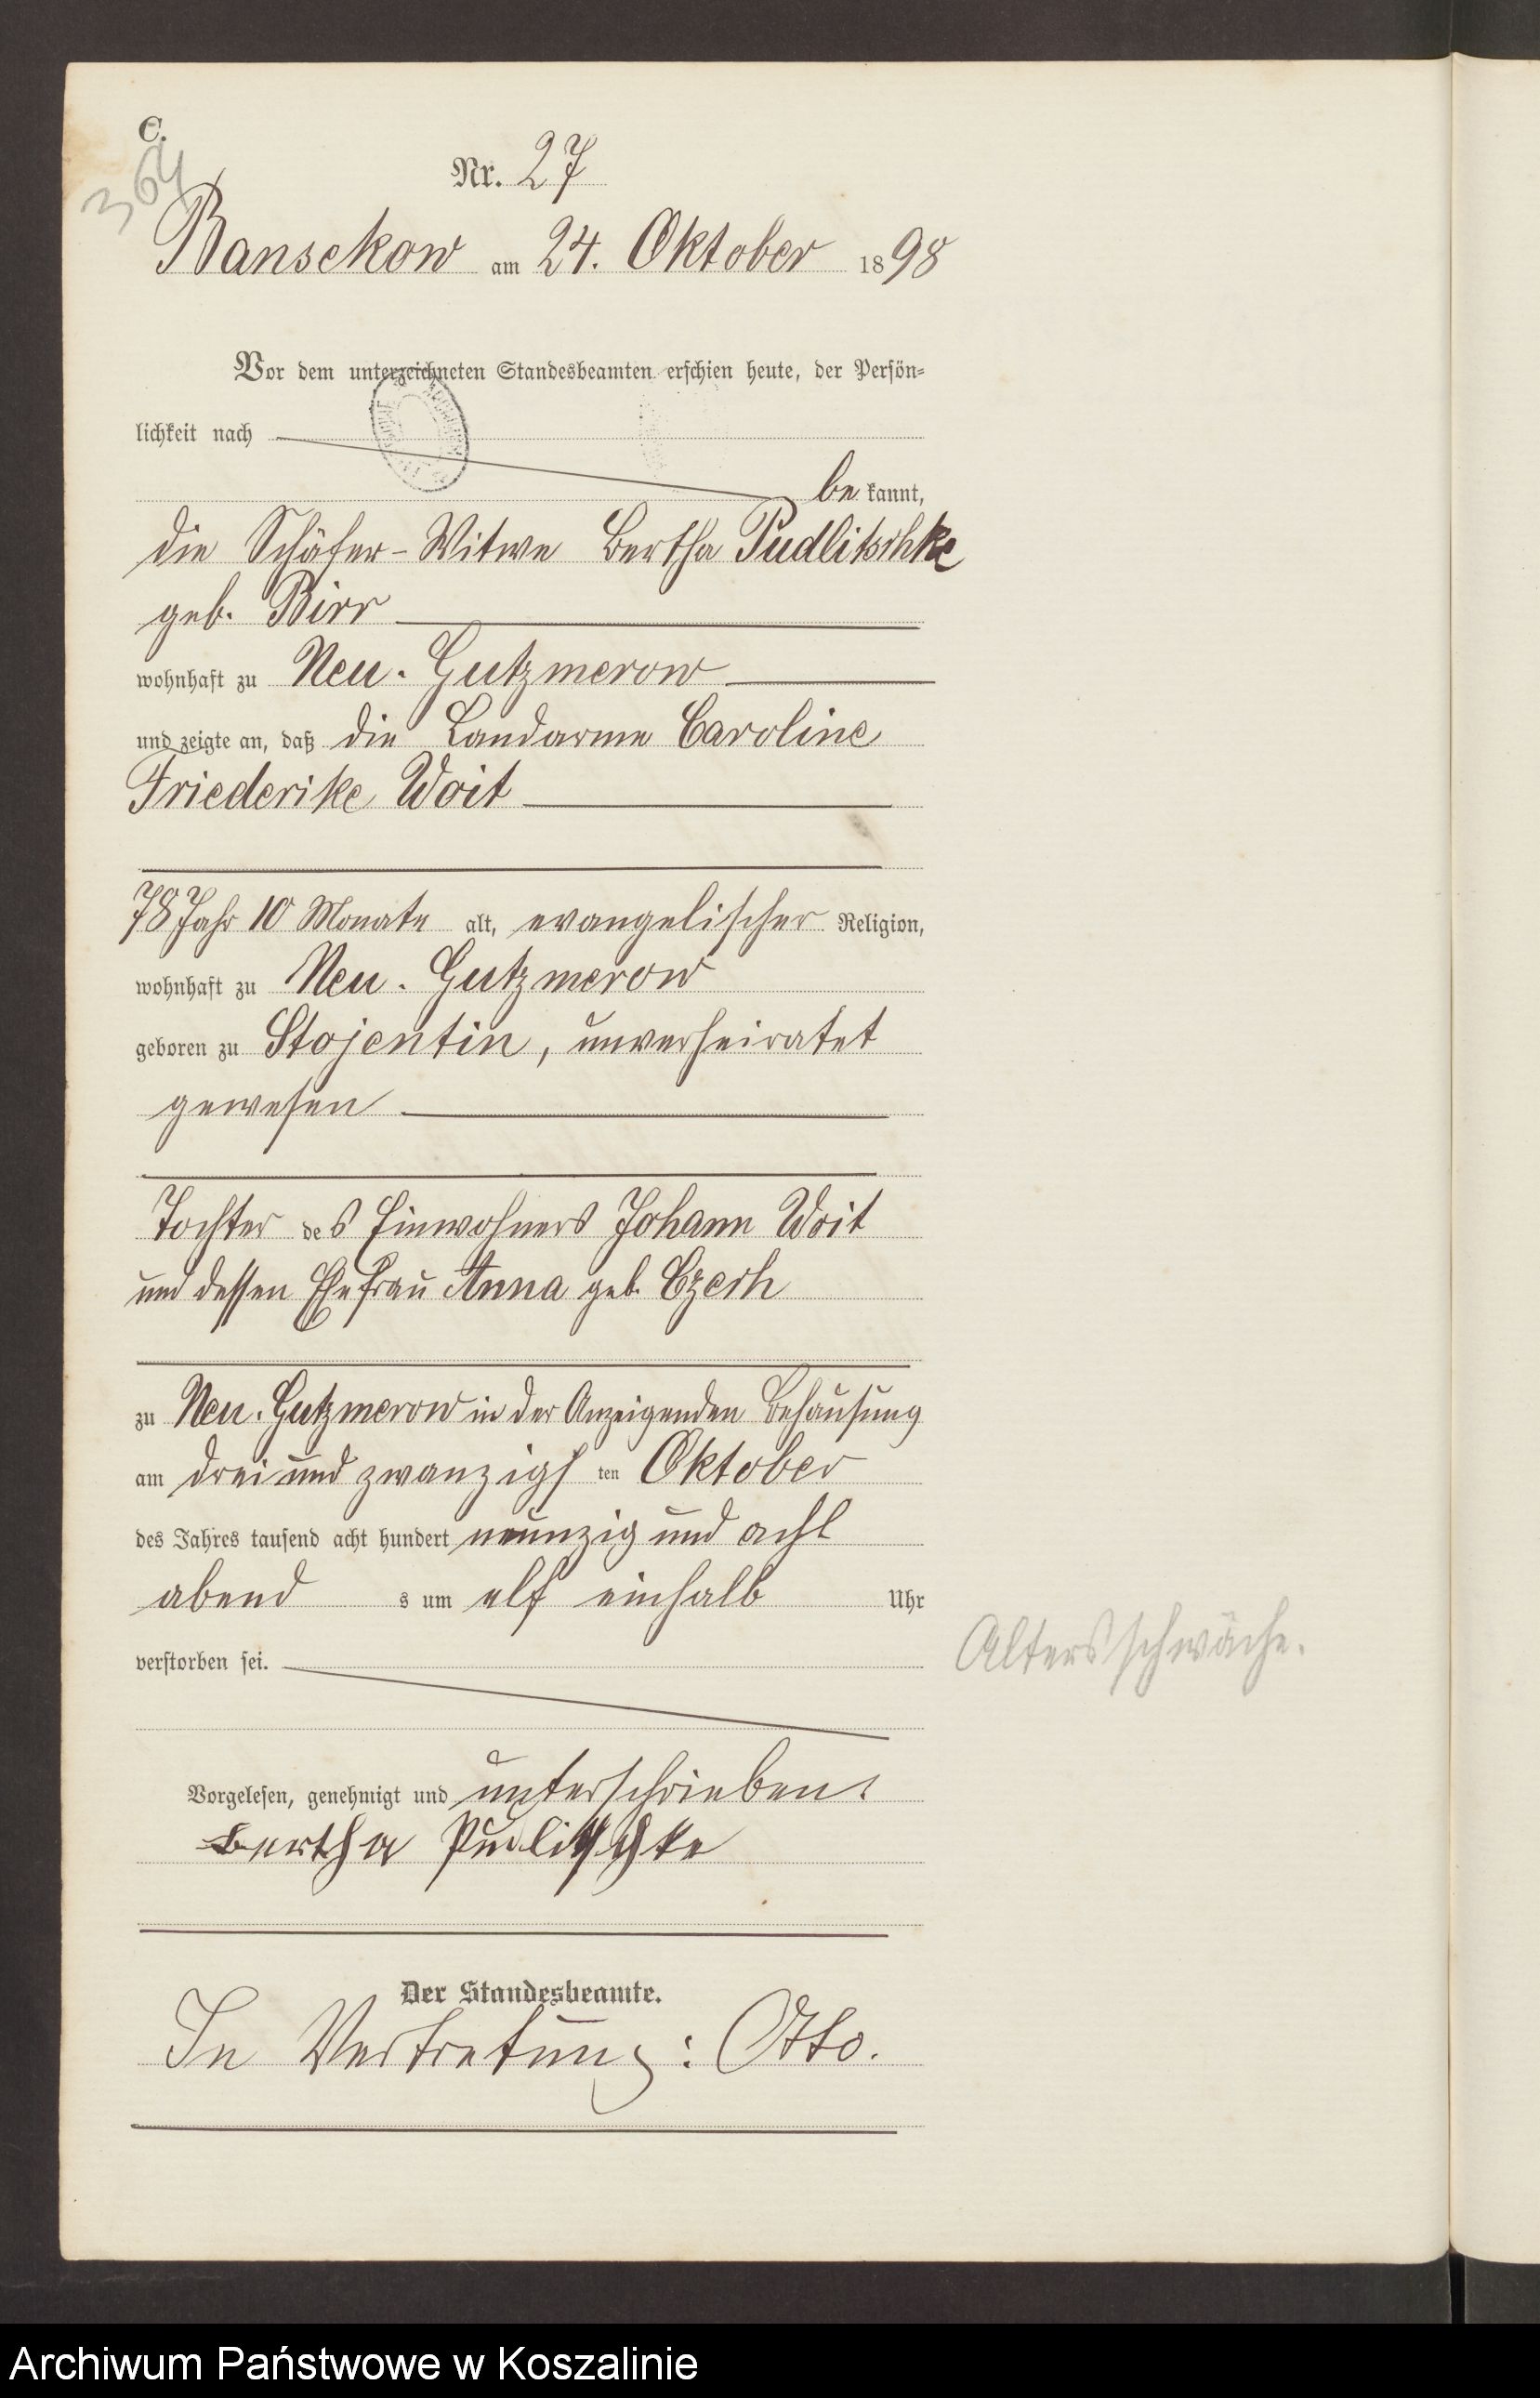 C.
364
Nr. 27
Bansekow am 24. Oktober 1898
Vor dem unterzeichneten Standesbeamten erschien heute, der Persön-
lichkeit nach
be kannt,
die Schäfer-Witwe Bertha Pudlitschke
geb. Birr
wohnhaft zu Neu-Gutzmerow
und zeigte an, daß die Landarme Caroline
Friederike Woit
78 Jahr 10 Monate alt, evangelischer Religion,
wohnhaft zu Neu-Gutzmerow
geboren zu Stojentin, unverheiratet
gewesen
Tochter des Einwohners Johann Woit
und dessen Ehefrau Anna geb. Czech
zu Neu-Gutzmerow in der Anzeigenden Behausung
am drei und zwanzigsten Oktober
des Jahres tausend acht hundert neunzig und acht
abend s um elf einhalb Uhr
verstorben sei.
Altersschwäche.
Vorgelesen, genehmigt und unterschrieben.
Bertha Pudlitschke
Der Standesbeamte.
In Vertretung: Otto.
Archiwum Państwowe w Koszalinie